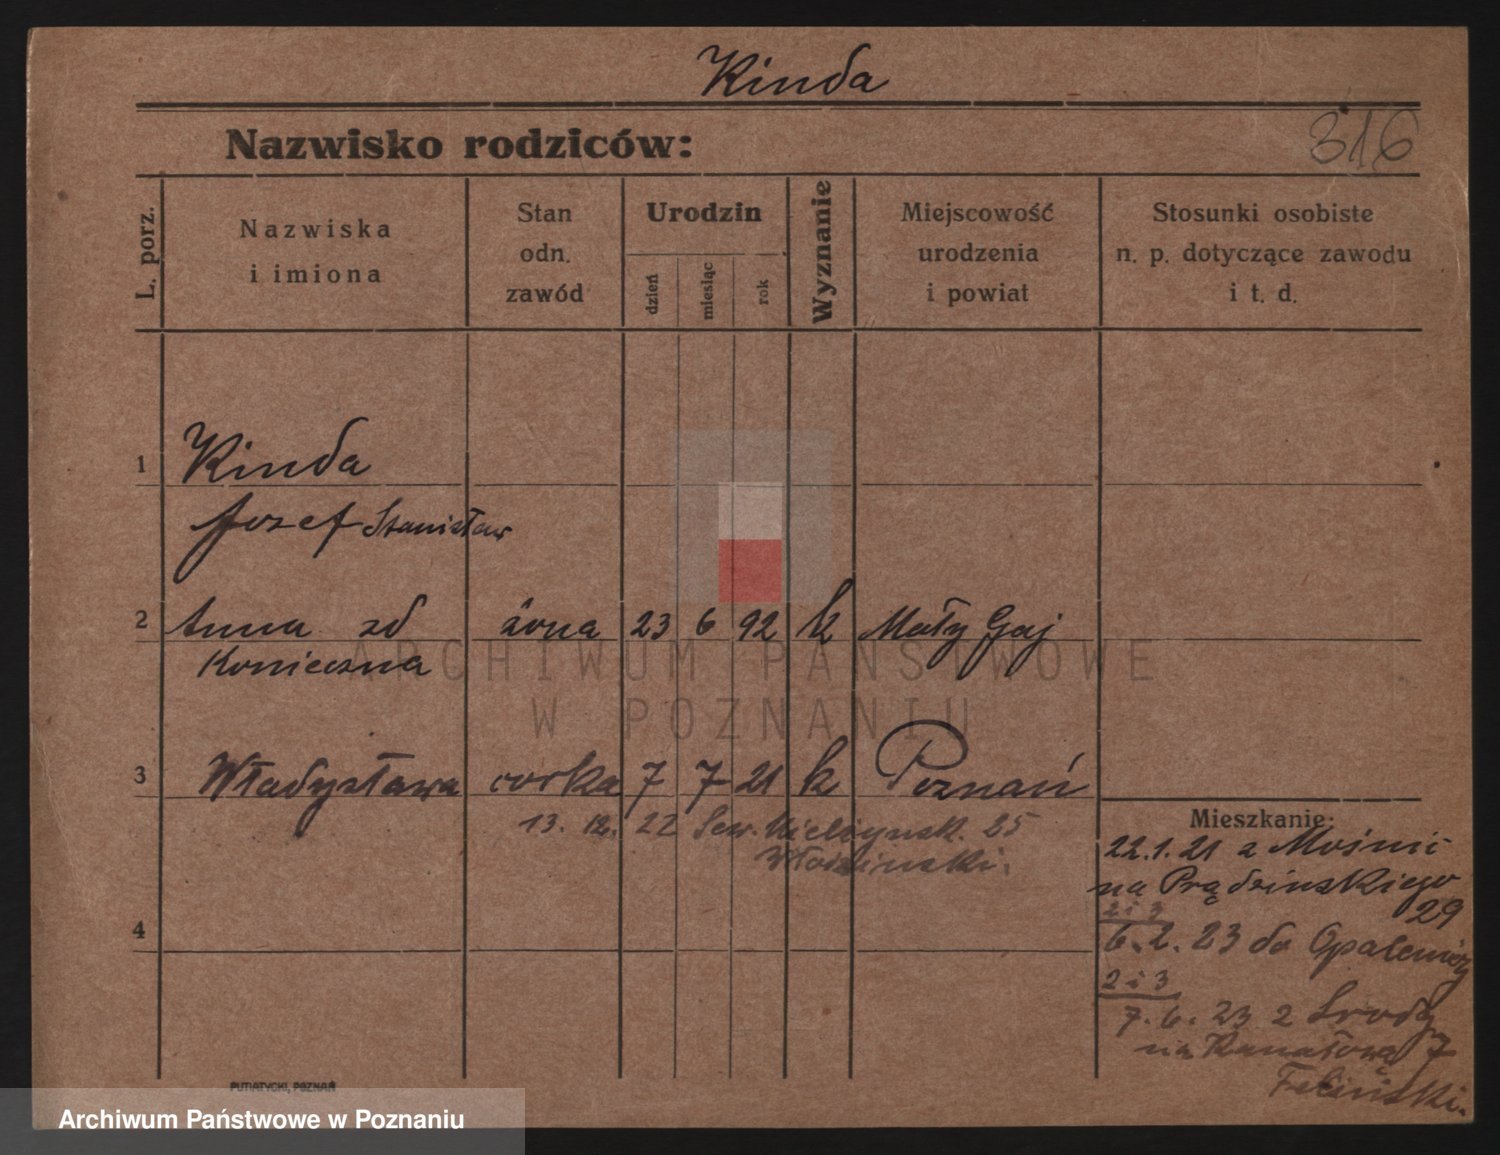 Kinda
316
Nazwisko rodziców:
L. porz.
Nazwiska
i imiona
Stan
odn.
zawód
Urodzin
dzień
miesiąc
rok
Wyznanie
Miejscowość
urodzenia
i powiat
Stosunki osobiste
n. p. dotyczące zawodu
i t. d.
1 Kinda
Jozef Stanisław
2 Anna zd żona 23 6 92 k Mały Gaj
Konieczna
ARCHIWUM PAŃSTWOWE
W POZNANIU
3 Władysława corka 7 7 21 k Poznań
13. 12. 22 Sew. Mielżynsk. 25
Mieszkanie:
22.1.21 z Mośnic
na Prądzinskiego
29
2 i 3
6. 2. 23 do Opalenicy
2 i 3
7. 6. 23 z Srody
na Kanałową 7
4
PUTIATYCKI, POZNAŃ
Archiwum Państwowe w Poznaniu